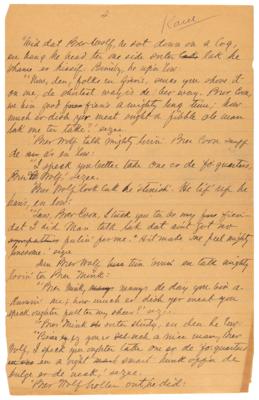 2
"Wid dat Brer Wolf, he sot down on a log,
en hang he head ter one side sorter lak he
shame er hisself. Bimeby, he up 'n low:
"Now, den, folks en frien's, sence you shove it
on me, de shortest way is de bes' way. Brer Coon,
we bin good frien's a mighty long time; how
much er dish yer meat might a feeble ole man
lak me ter take?' sezee.
"Brer Wolf talk mighty lovin'. Brer Coon
en low:
"'I speck you better take one er de fo' quarters,
Brer Wolf,' sezee.
"Brer Wolf look lak he 'stonish. He lif' up he
han's, en low:
"'Law, Brer Coon, I lack you ter be my frien'
dat I did. Man talk lak dat ain't got no
pullin' fer me.' "Hit made me feel mighty
lonesome,' sezee.
"Den Brer Wolf turn 'roun' en talk mighty
lovin' ter Brer Mink:
"'Brer Mink, many's de day you bin a
; how much er dish yer meat you
speck oughter fall ter my sheer?' sezee.
"Brer Mink sorter study, en den he low:
"' you er sech a nice man, Brer
Wolf, I speck you oughter take one er de fo' quarters
en a right smart hunk off'n de
bulge er de neck,' sezee.
"Brer Wolf holler out, he did: